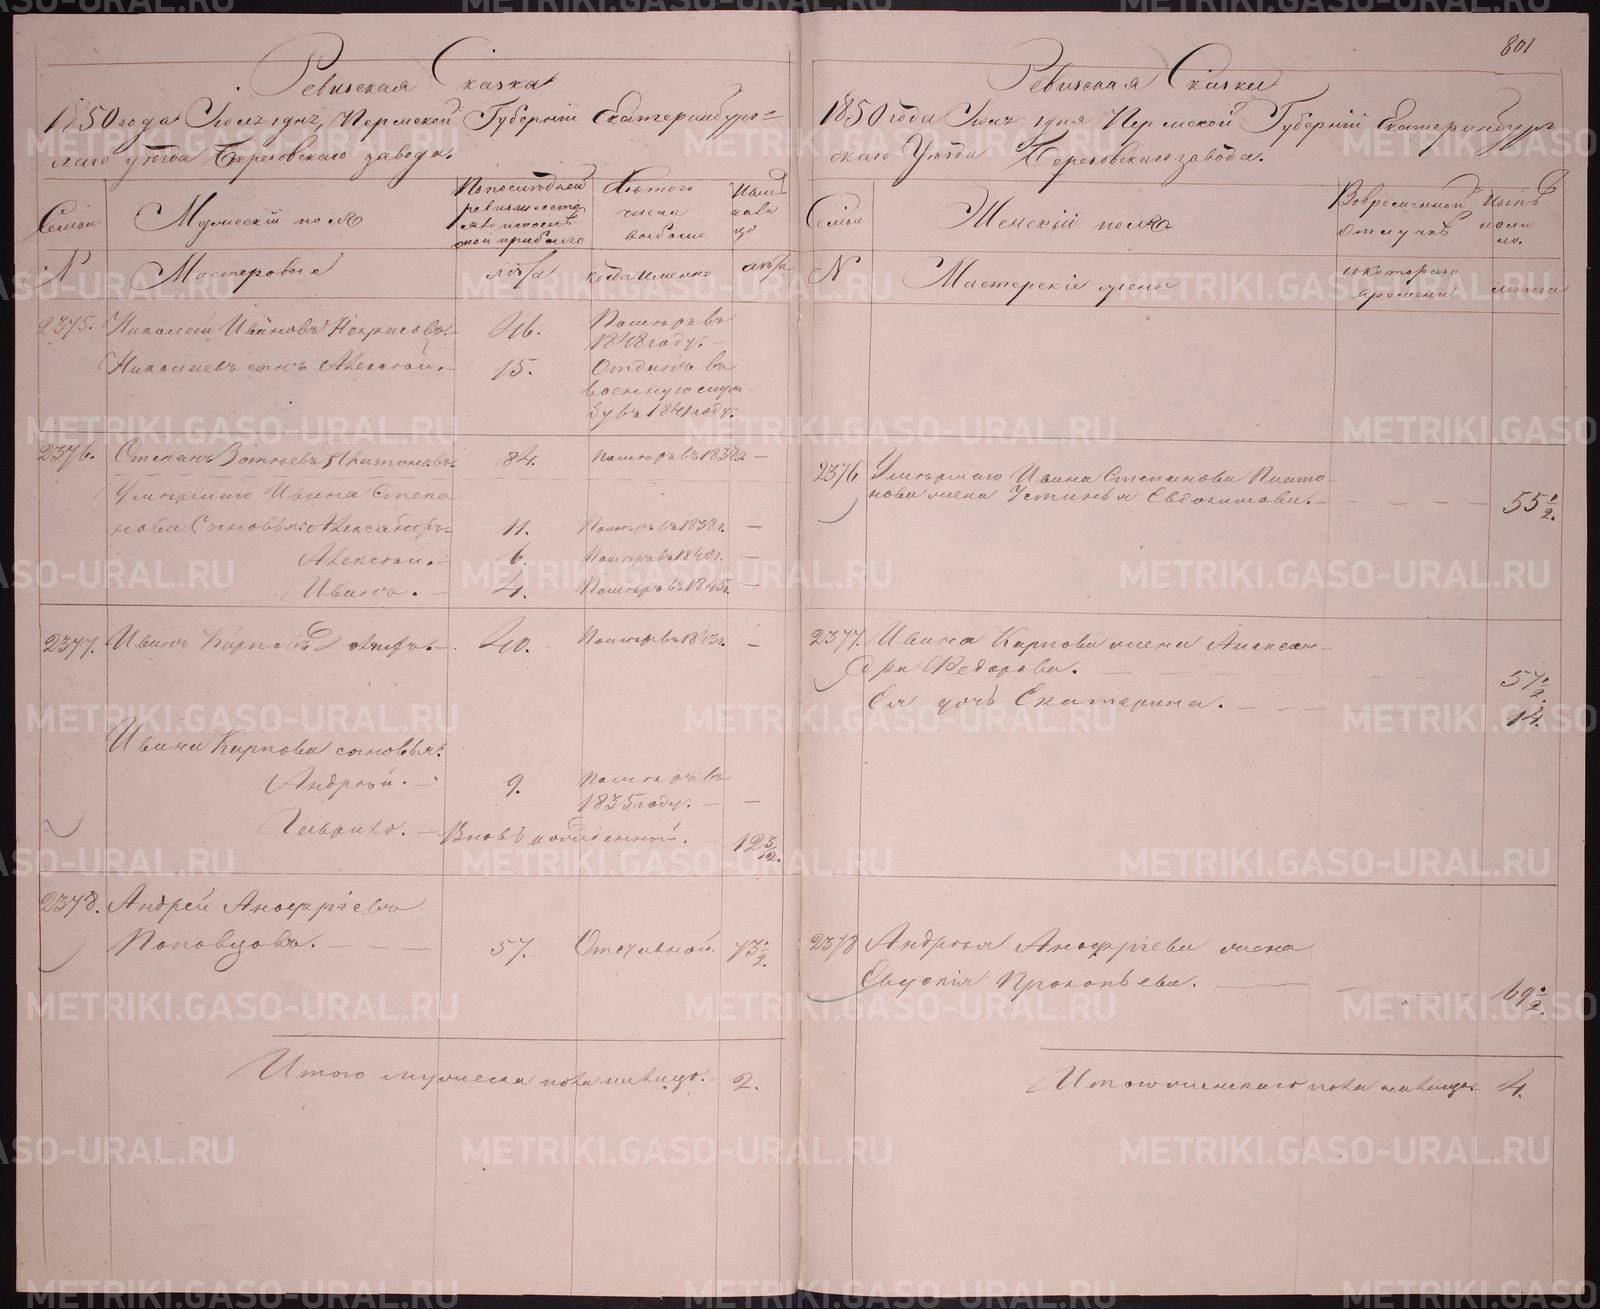 Ревизская Сказка
1850 года Июля 1 дня, Пермской Губернiи Екатеринбург=
скаго уѣзда Березовскаго завода.
Семьи
Мужескiй полъ
По последней ревизiи состояло и после оной прибыло
Изъ того числа выбыло
Ныне на лицо
N
Мастеровые
лѣта
когда именно
лѣта
2375. Николай Ивановъ Некрасовъ. 46. Померъ въ
1848 году. —
Николаевъ сынъ Алексей. 15. Отданъ въ
военную служ
бу въ 1841 году.
2376. Степанъ Зотеевъ Платоновъ 84. Померъ въ 1838 —
Умершаго Ивана Степа
нова Сыновья: Александръ 11. Померъ въ 1838 г. —
Алексей. — 6. Померъ въ 1840 г. —
Иванъ. — 4. Померъ въ 1845 г. —
2377. Иванъ Карповъ 40. Померъ въ 1843 г. —
Ивана Карпова сыновья:
Андрей. — 9. Померъ въ
1835 году. — —
Гаврило. — Вновь рожденной. — 12 3/12.
2378. Андрей Ануфрiевъ
Поповцовъ. — — — 57. Отставной. 73 1/2.
Итого мужеска пола налицо. — 2.
801
Ревизская Сказки
1850 года Июля 1 дня Пермской Губернiй Екатеринбург
скаго Уѣзда Березовскаго завода.
Семьи
Женскiй полъ
Во временной отлучкѣ
Нынѣ нали
цо.
N
Мастерскiе жена
съ котораго времени
лѣта
2376 Умершаго Ивана Степанова Плато
нова жена Устинья Евдокимова. — — — 55 1/2.
2377. Ивана Карпова жена Алексан-
дра Федорова. — — — 57 1/2
Ея дочь Екатерина. — — — 14.
2378 Андрея Ануфрiева жена
Евдокiя Прокопьева. — — — 69 1/2.
Итого женскаго пола налицо. 4.
METRIKI.GASO-URAL.RU